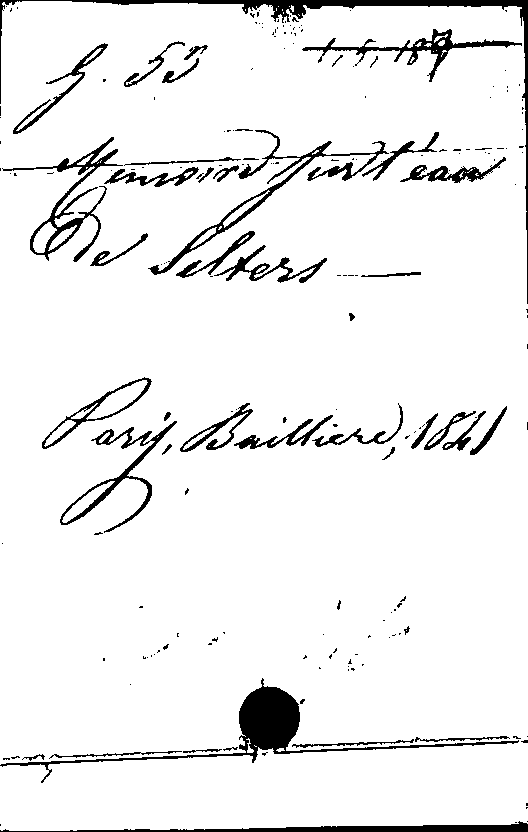 G. 53
Memoire sur l'eau
de Selters —
Paris, Bailliere, 1841